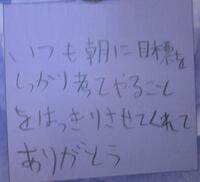 いつも朝に目標を
しっかり考てやること
をはっきりさせてくれて
ありがとう